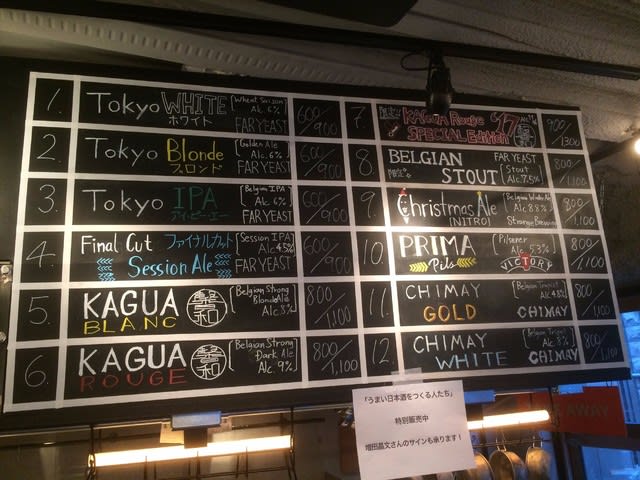 1. Tokyo WHITE [Wheat Saison Alc. 6% 600/900
ホワイト FAR YEAST
2. Tokyo Blonde [Golden Ale Alc. 6% 600/900
ブロンド FAR YEAST
3. Tokyo IPA [Belgian IPA Alc. 6% 600/900
アイ・ピー・エー FAR YEAST
4. Final Cut ファイナルカット [Session IPA Alc. 4.5% 600/900
Session Ale FAR YEAST
5. KAGUA 馨和 [Belgian Strong Blonde Ale Alc. 8% 800/1,100
BLANC
6. KAGUA 馨和 [Belgian Strong Dark Ale Alc. 9% 800/1,100
ROUGE
7. 限定 KAGUA Rouge '17 900/1300
SPECIAL Edition
8. BELGIAN FAR YEAST 800/1,100
限定 STOUT [Stout Alc. 7.5%
9. Christmas Ale Alc. 8.8% 800/1,100
[NITRO]
10. PRIMA [Pilsener Alc. 5.3% 800/1,100
Pils VICTORY
11. CHIMAY [Belgian Trappist Alc. 4.8% 800/1,100
GOLD CHIMAY
12. CHIMAY [Belgian Tripel Alc. 8% 800/1,100
WHITE CHIMAY
「うまい日本酒をつくる人たち」
特別販売中
増田晶文さんのサインも承ります！
AWAY